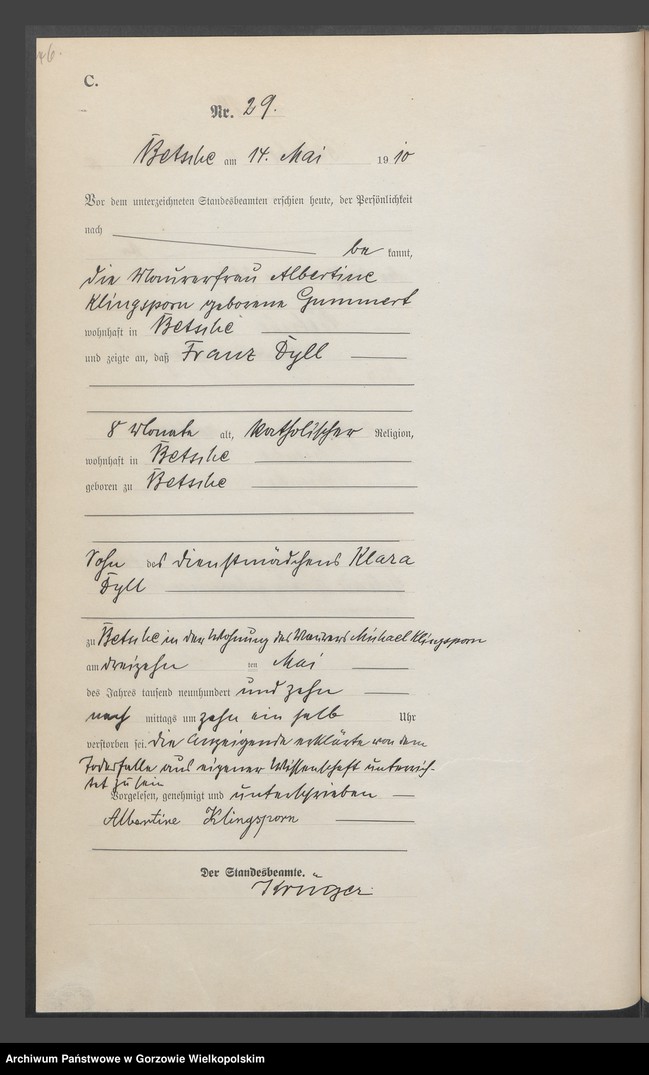 46.
C.
Nr. 29.
Betsche am 14. Mai 1910
Vor dem unterzeichneten Standesbeamten erschien heute, der Persönlichkeit
nach
be kannt,
die Maurerfrau Albertine
Klingsporn geborene Gummert
wohnhaft in Betsche
und zeigte an, daß Franz Dyll
8 Monate alt, katholischer Religion,
wohnhaft in Betsche
geboren zu Betsche
Sohn des Dienstmädchens Klara
Dyll
zu Betsche in der Wohnung des Maurers Michael Klingsporn
am dreizehn ten Mai
des Jahres tausend neunhundert und zehn
nach mittags um zehn ein halb Uhr
verstorben sei. Die Anzeigende erklärte von dem
Todesfalle aus eigener Wissenschaft unterrich-
tet zu sein
Vorgelesen, genehmigt und unterschrieben
Albertine Klingsporn
Der Standesbeamte.
Krüger
Archiwum Państwowe w Gorzowie Wielkopolskim